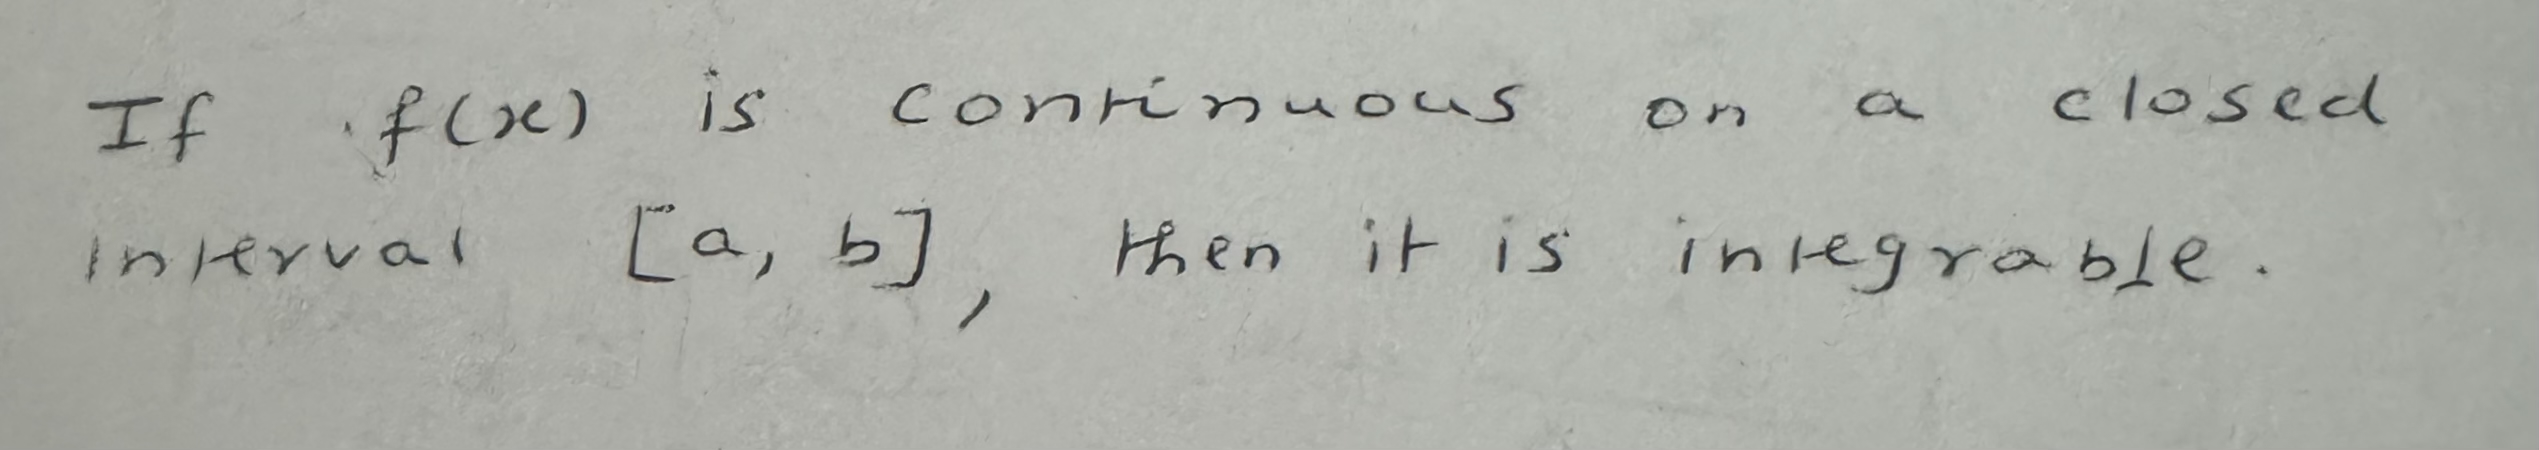 If f(x) is continuous on a closed
interval [a, b], then it is integrable.